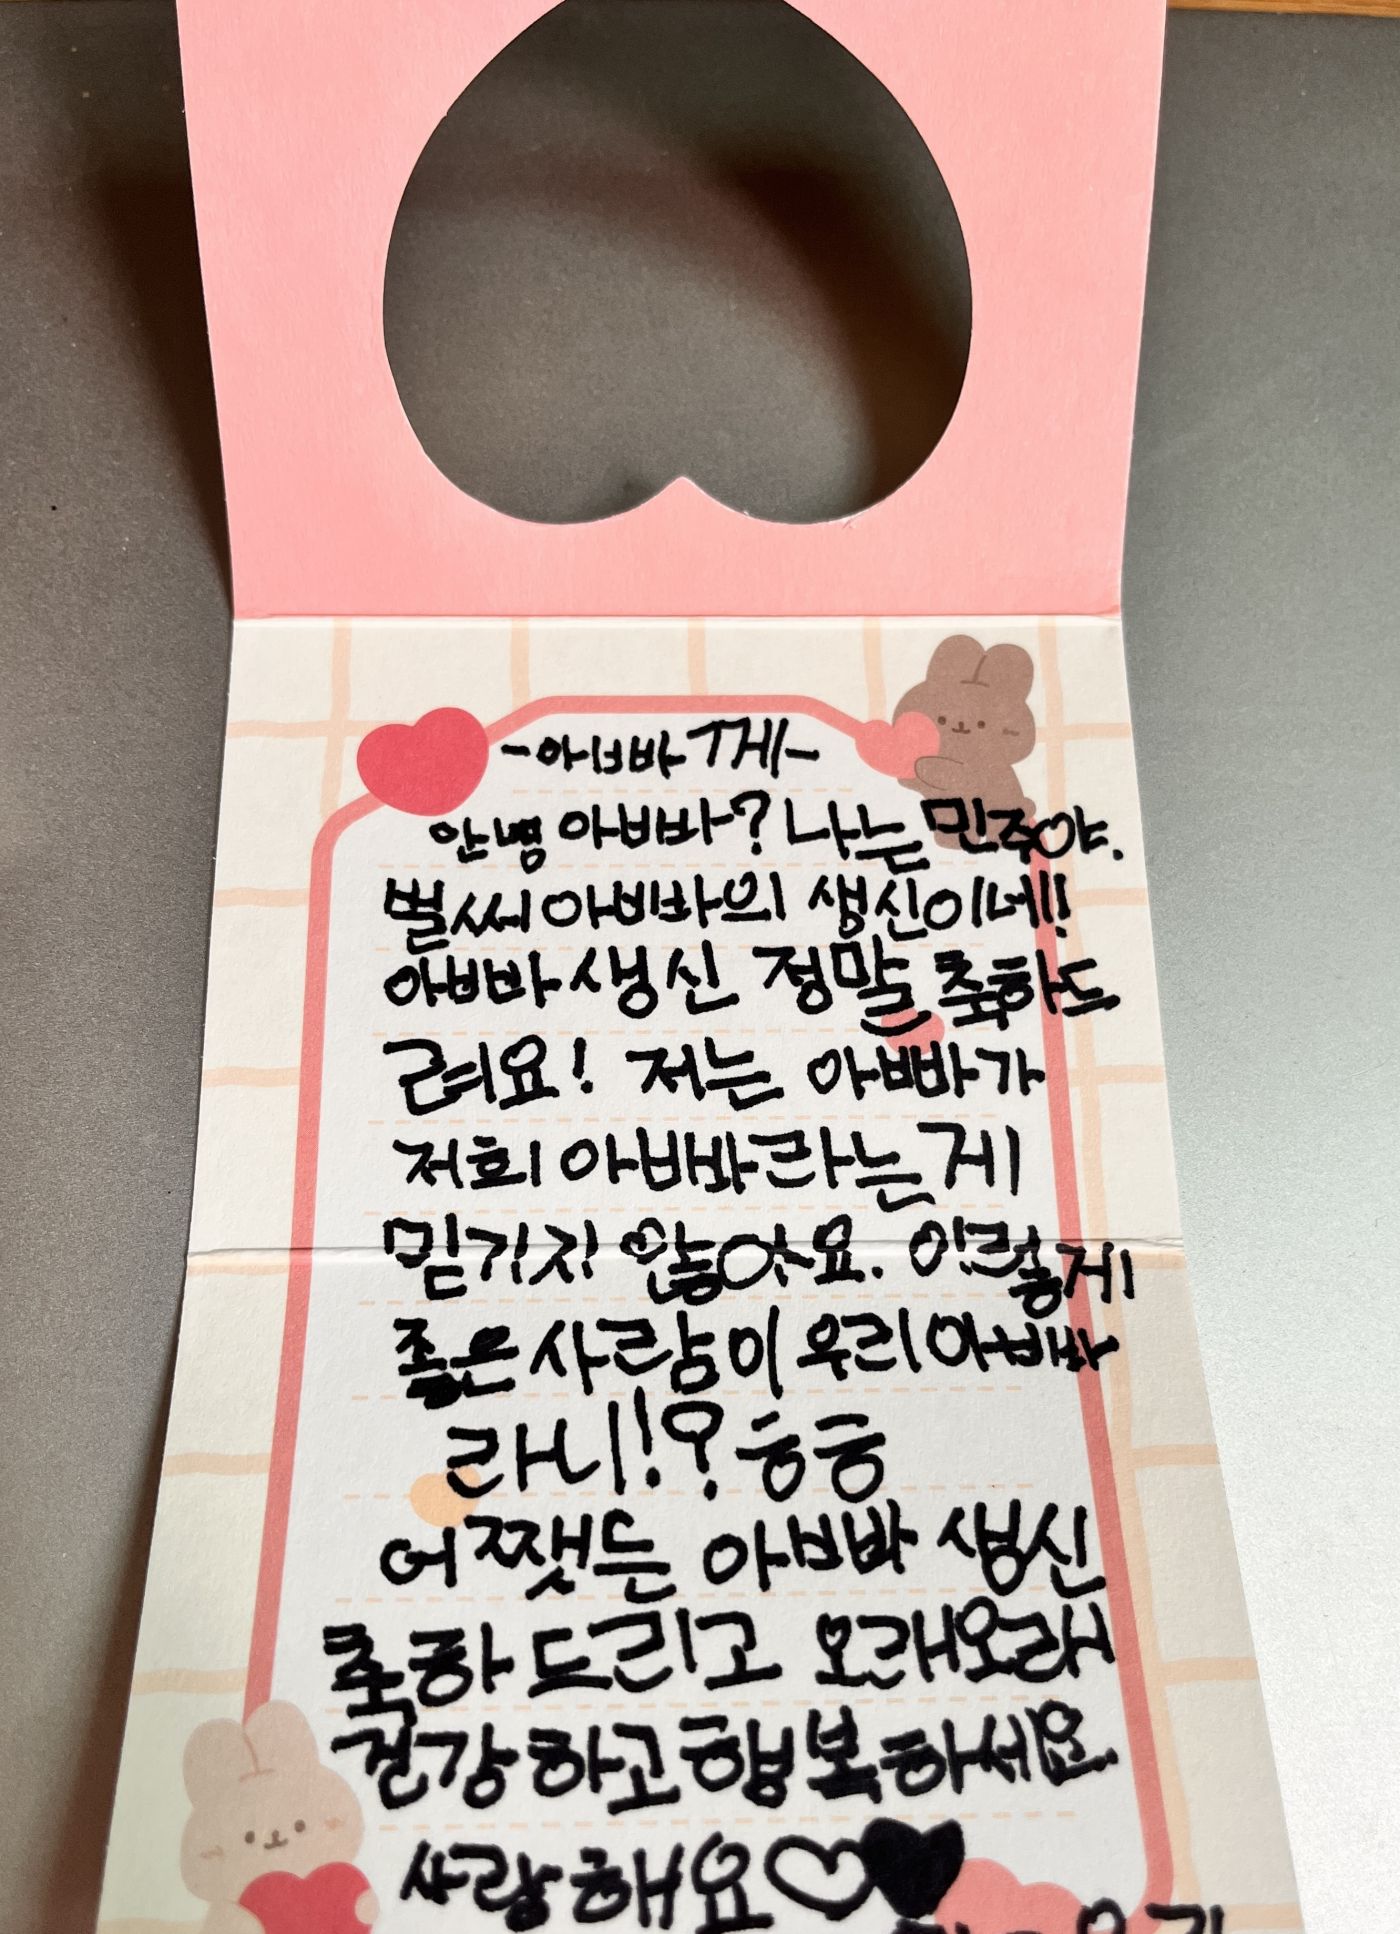 -아빠께-
안녕 아빠? 나는 민주야.
벌써 아빠의 생신이네!
아빠 생신 정말 축하드
려요! 저는 아빠가
저희 아빠라는게
믿기지 않아요. 이렇게
좋은 사람이 우리 아빠
라니!? 흥흥
어쨋든 아빠 생신
축하드리고 오래오래
건강하고 행복하세요.
사랑해요♡♥